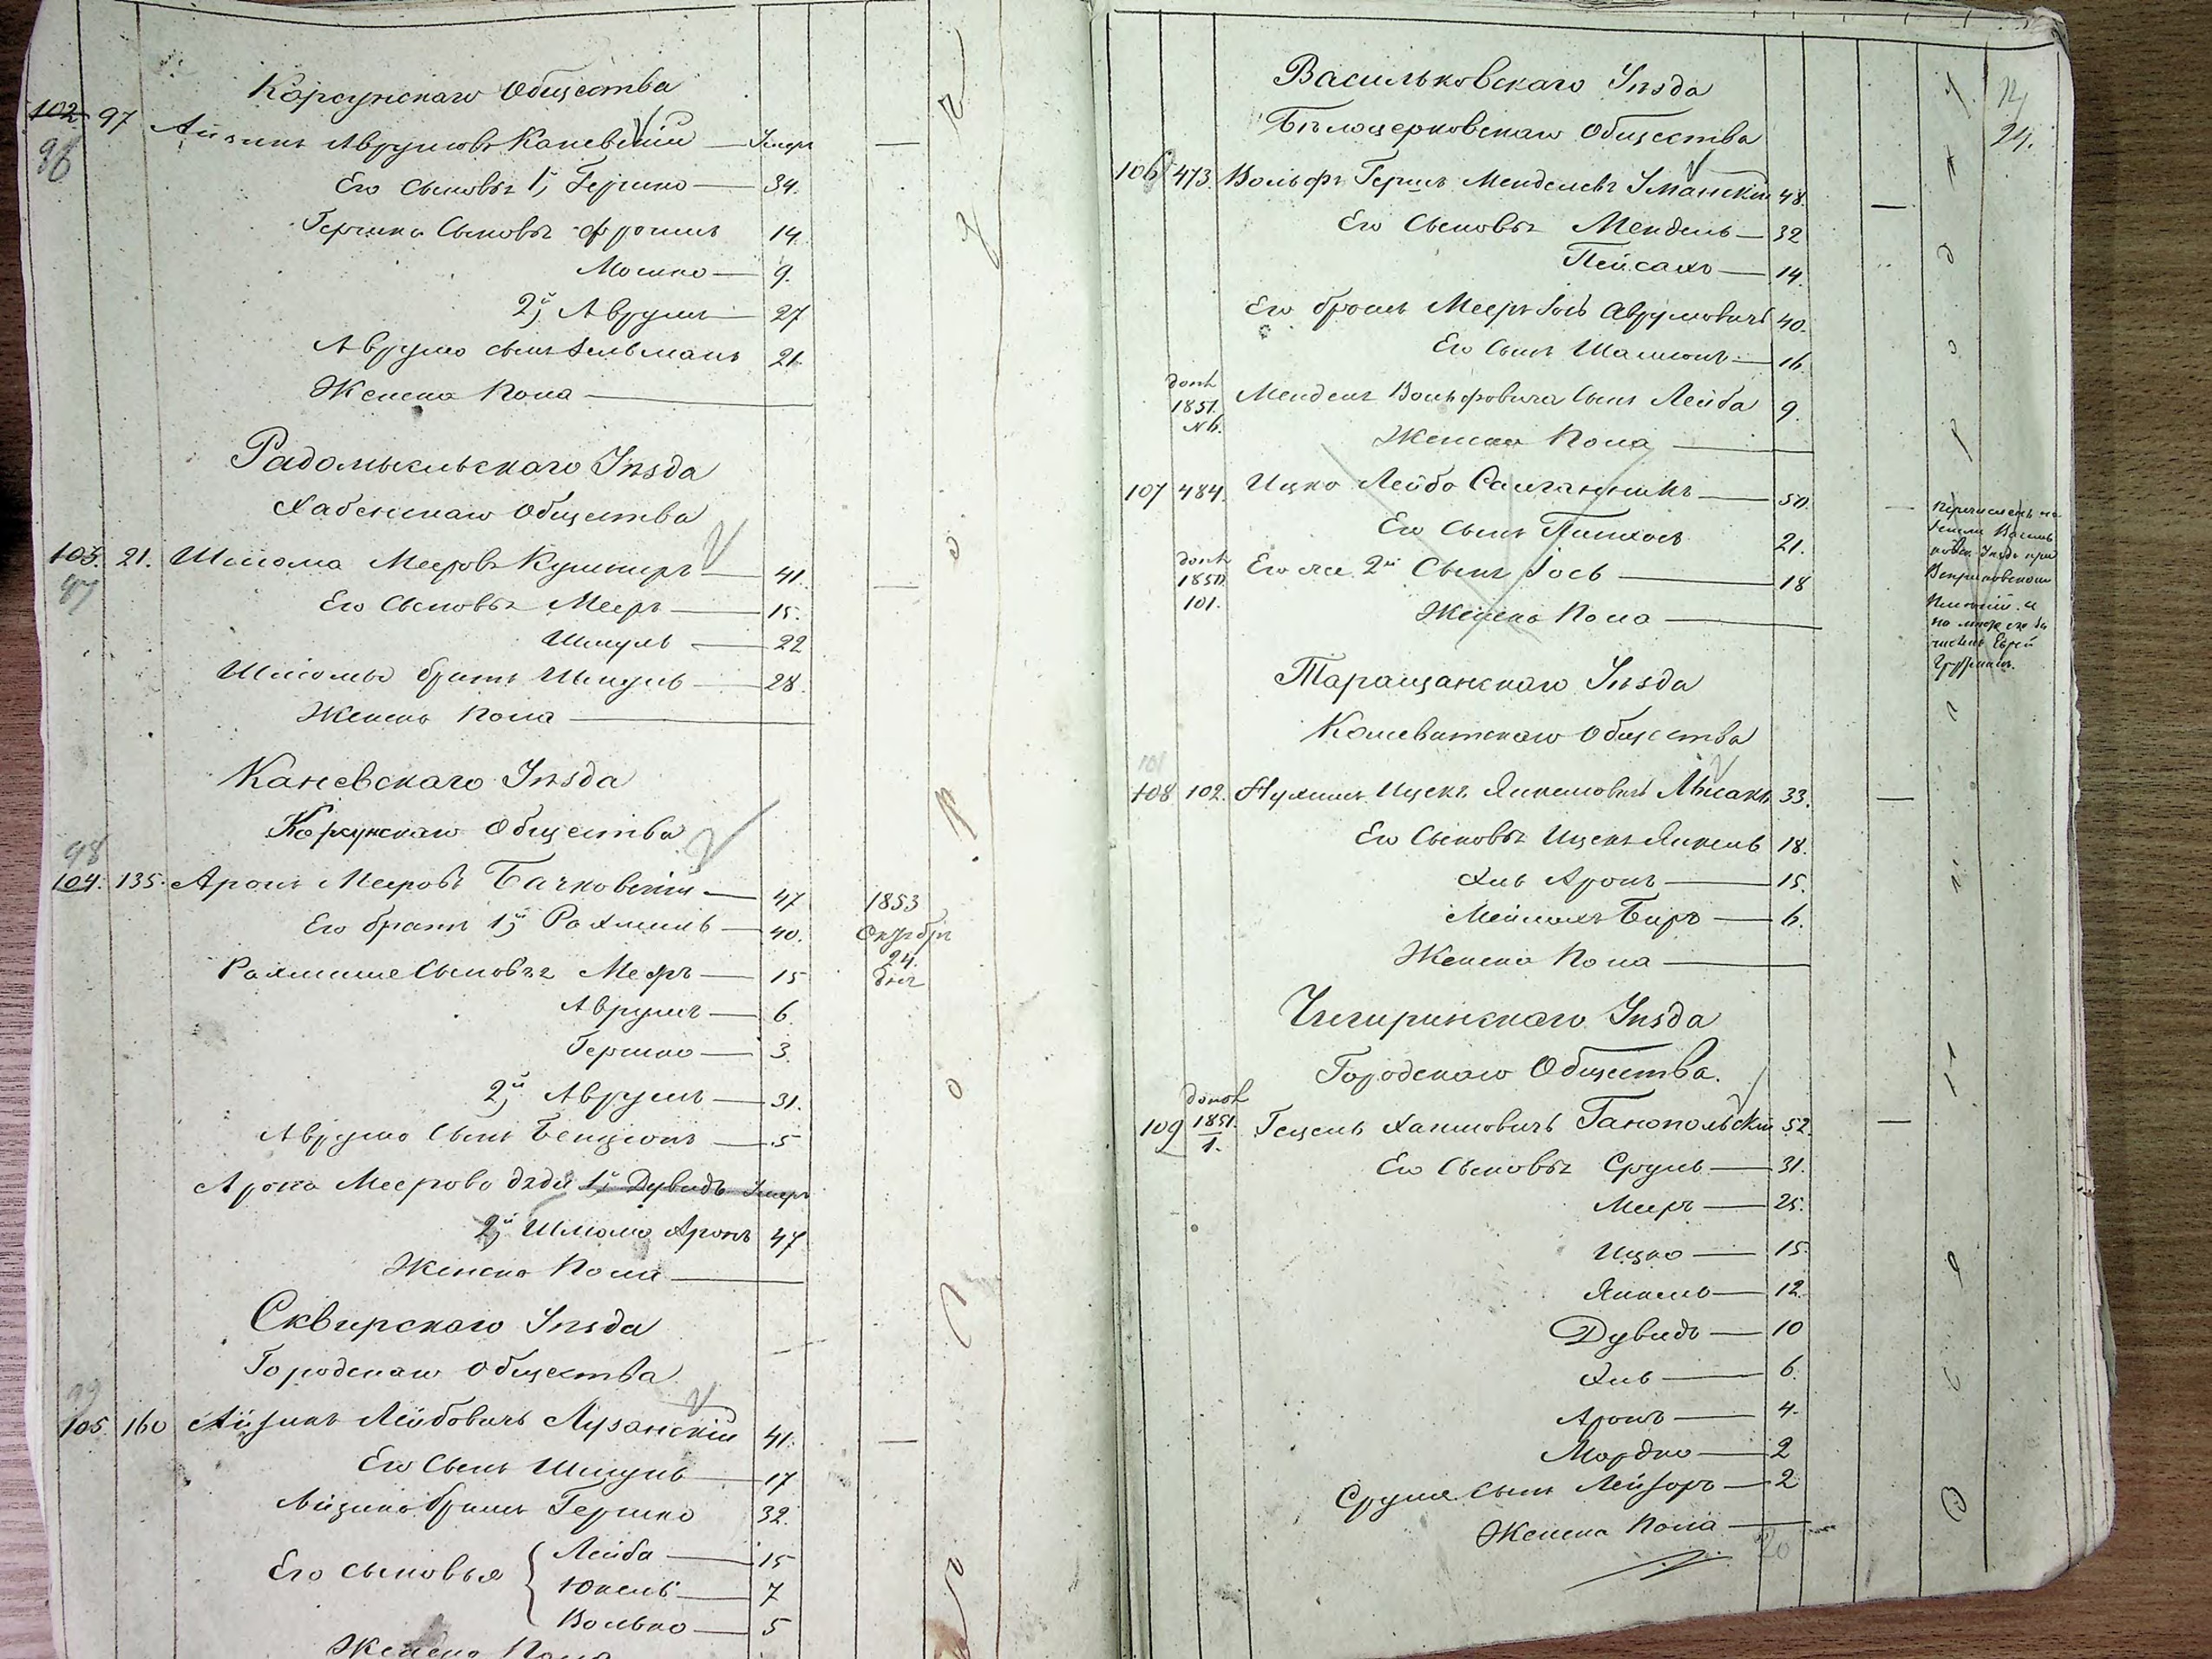 Корсунскаго Общества
102 97 Айзикъ Аврумовъ Каневскій — Умеръ —
96
Его Сыновья 1й Гершко — 34.
Гершка Сыновья Фроимъ 14.
Мошко — 9.
2й Аврумъ — 27
Аврума сынъ Зельманъ 21.
Женска пола —
Радомысльскаго Уѣзда
Хабенскаго Общества
103. 21. Шлиома Мееровъ Кушниръ — 41. —
97
Его Сыновья Мееръ — 15.
Шмуль — 22
Шліомы братъ Шмуль — 28.
Женска пола —
Каневскаго Уѣзда
Корсунскаго Общества
98
104. 135. Аронъ Мееровъ Бачковскій — 47
1853
Октября
24.
Его братъ 1й Рахмиль — 40.
Рахмиля Сыновья Мееръ — 15
Аврумъ — 6.
Гершко — 3.
2й Аврумъ — 31.
Аврума Сынъ Бенціонъ — 5
Арона Меерова дяди 1й Дувидъ Умеръ
2й Шлиома Аронъ 47
Женска пола —
Сквирскаго Уѣзда
Городскаго Общества
99
105. 160 Айзикъ Лейбовичъ Лузанскій 41. —
Его Сынъ Шмуль — 17
Айзика братъ Гершко 32.
Его сыновья { Лейба — 15
Юкель — 7
Волько — 5
Женска пола
Васильковскаго Уѣзда
Бѣлоцерковскаго Общества
14
24.
106 473. Вольфъ Гершъ Менделевъ Уманскій 48. —
Его Сыновья Мендель — 32
Пейсахъ — 14.
Его братъ Мееръ Іось Аврумовичъ 40.
Его Сынъ Шашіонъ — 16.
допл
1851.
№6.
Мендель Вольфовича Сынъ Лейба 9.
Женска пола —
107 484. Ицко Лейба Салганникъ — 50. —
Его Сынъ Пинхосъ 21.
допл
1850.
101.
Его же 2й Сынъ Іось — 18
Женска пола —
Таращанскаго Уѣзда
Кошеватскаго Общества
101
108 102. Нухимъ Ицекъ Янкелевичъ Лысакъ 33. —
Его Сыновья Ицекъ Янкель 18.
Хиль Аронъ — 15.
Мейлахъ Беръ — 6.
Женска пола —
Чигиринскаго Уѣзда
Городскаго Общества.
109 допол 1851. 1. Гецель Хаимовичъ Ганопольскій 52. —
Его Сыновья Сруль — 31.
Мееръ — 25.
Ицко — 15.
Янкель — 12.
Дувидъ — 10
Хиль — 6.
Аронъ — 4.
Мордко — 2
Сруля сынъ Лейзоръ — 2
Женска пола —
20